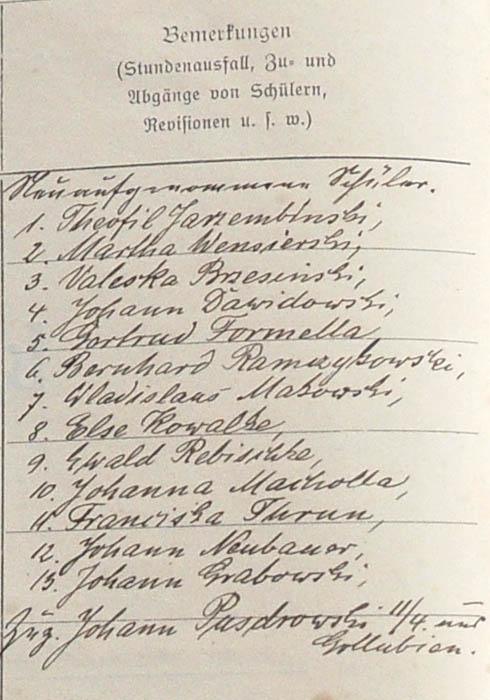 Bemerkungen
(Stundenausfall, Zu- und
Abgänge von Schülern,
Revisionen u. s. w.)
Neuaufgenommene Schüler.
1. Theofil Jarzembinski,
2. Martha Wensierski,
3. Valeska Brzesinski,
4. Johann Dawidowski,
5. Gertrud Formella,
6. Bernhard Ramczykowski,
7. Wladislaus Makowski,
8. Else Kowalke,
9. Ewald Rebischke,
10. Johanna Macholla,
11. Franciska Thrun,
12. Johann Neubauer,
13. Johann Grabowski,
Zug. Johann Pasdrowski 11/4. aus
Gollubien.